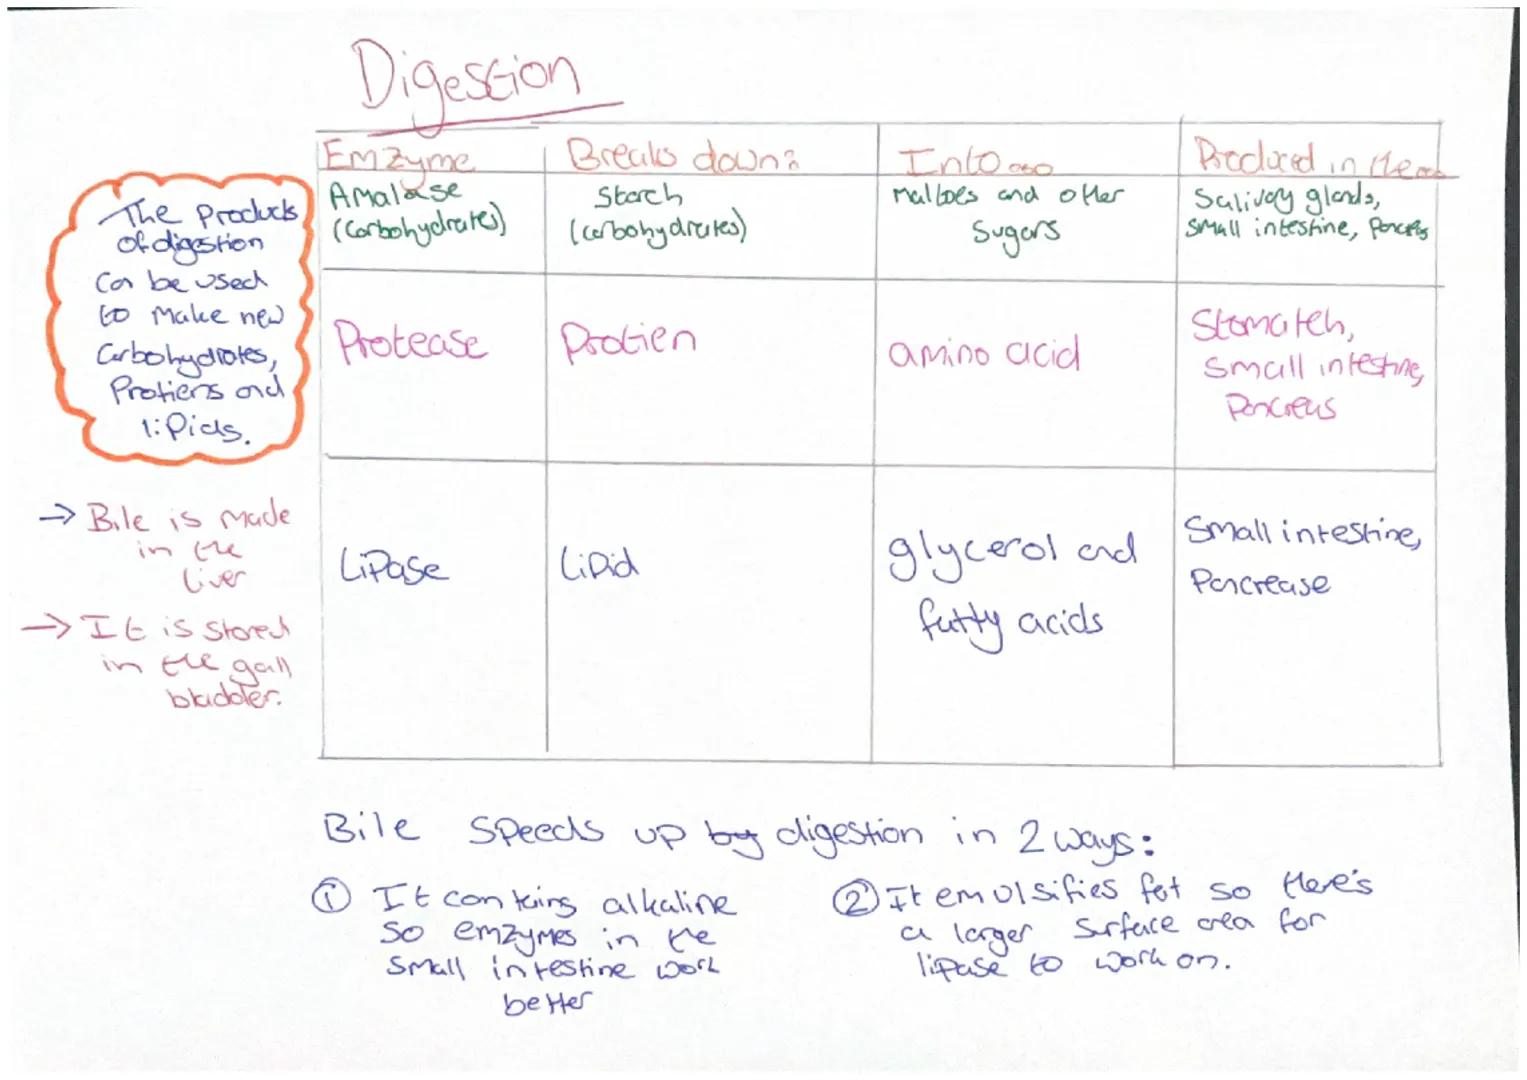 Digestion
Emzyme
Breaks down:
Into...
Produced in the...
Amalase
(Carbohydrates)
Starch
(carbohydrates)
Maltoes and other
Sugars
Salivay glands,
Small intestine, Pancreas
Protease
Protien
amino acid
Stomatch,
Small intestine,
Pancreus
Lipase
Lipid
glycerol and
fatty acids
Small intestine,
Pancrease
The Products
of digestion
Can be used
to Make new
Carbohydrates,
Protiens and
lipids.
→ Bile is Made
in the
liver
→ It is Stored
in the gall
bladder.
Bile Speeds up by digestion in 2 ways:
① It contains alkaline
So emzymes in the
Small intestine work
better
② It emulsifies fat so there's
a larger Surface area for
lipase to work on.